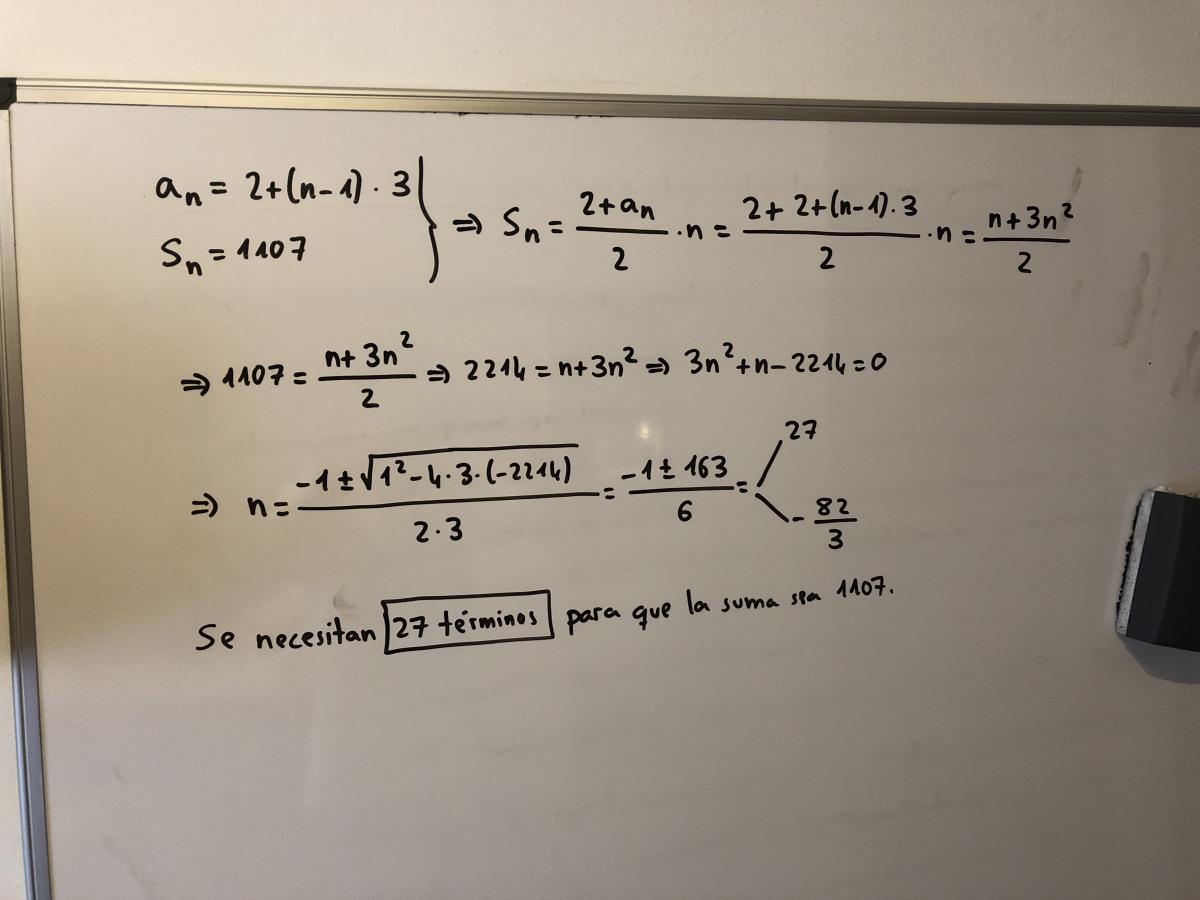 aₙ = 2+(n-1)·3 } ⇒ Sₙ = (2+aₙ)/2 ·n = (2+2+(n-1)·3)/2 ·n = (n+3n²)/2
Sₙ = 1107
⇒ 1107 = (n+3n²)/2 ⇒ 2214 = n+3n² ⇒ 3n²+n-2214=0
⇒ n = (-1±√(1²-4·3·(-2214)))/(2·3) = (-1±163)/6 = 27
-82/3
Se necesitan 27 términos para que la suma sea 1107.